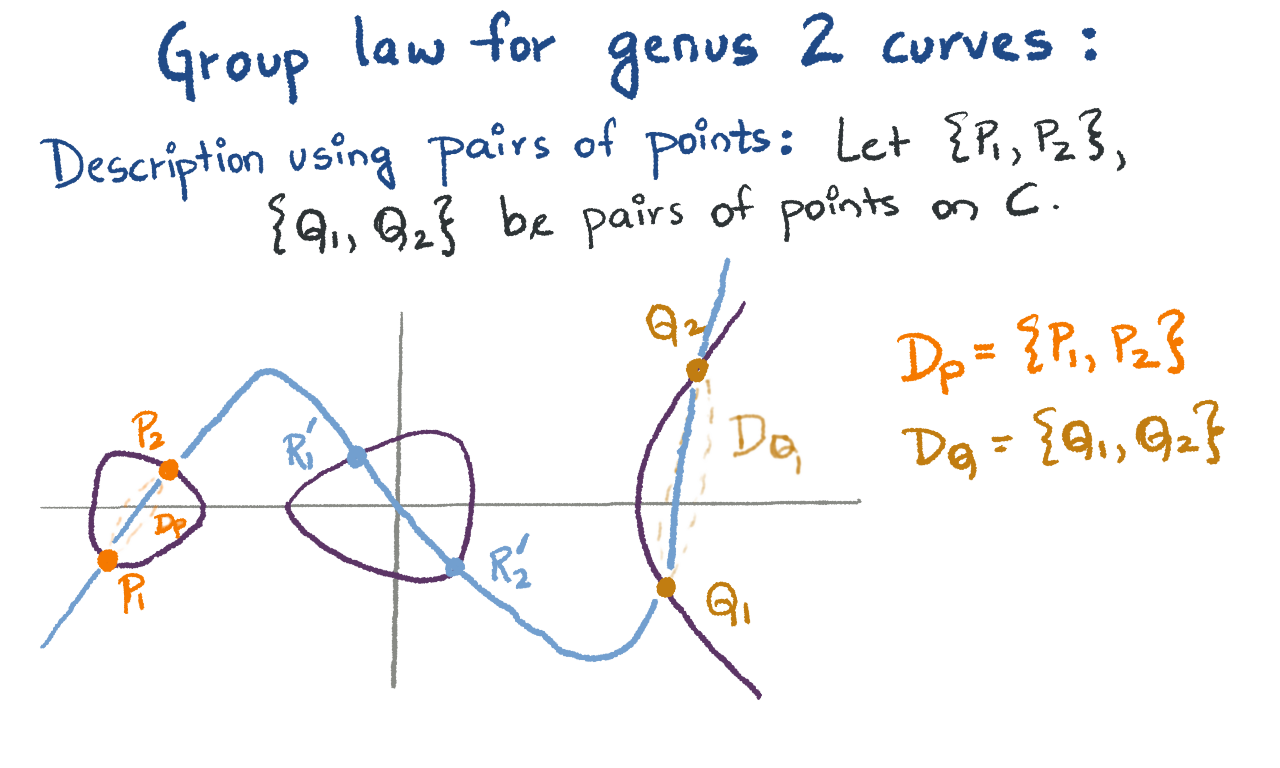 Group law for genus 2 curves :
Description using pairs of points: Let {P₁, P₂},
{Q₁, Q₂} be pairs of points on C.
Q₂
D_P = {P₁, P₂}
P₂
R₁′
D_Q₁
D_Q = {Q₁, Q₂}
D_P
P₁
R₂′
Q₁